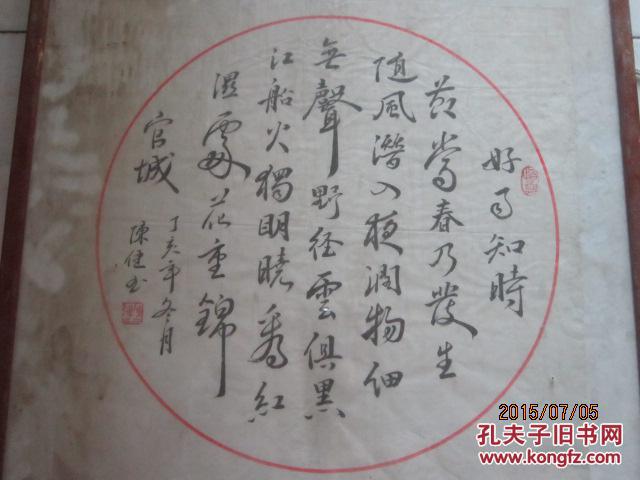 好雨知時
节當春乃發生
随風潛入夜潤物細
無聲野径雲俱黑
江船火獨明曉看紅
濕處花重錦
官城
丁亥年冬月
陳健书
2015/07/05
孔夫子旧书网
www.kongfz.com